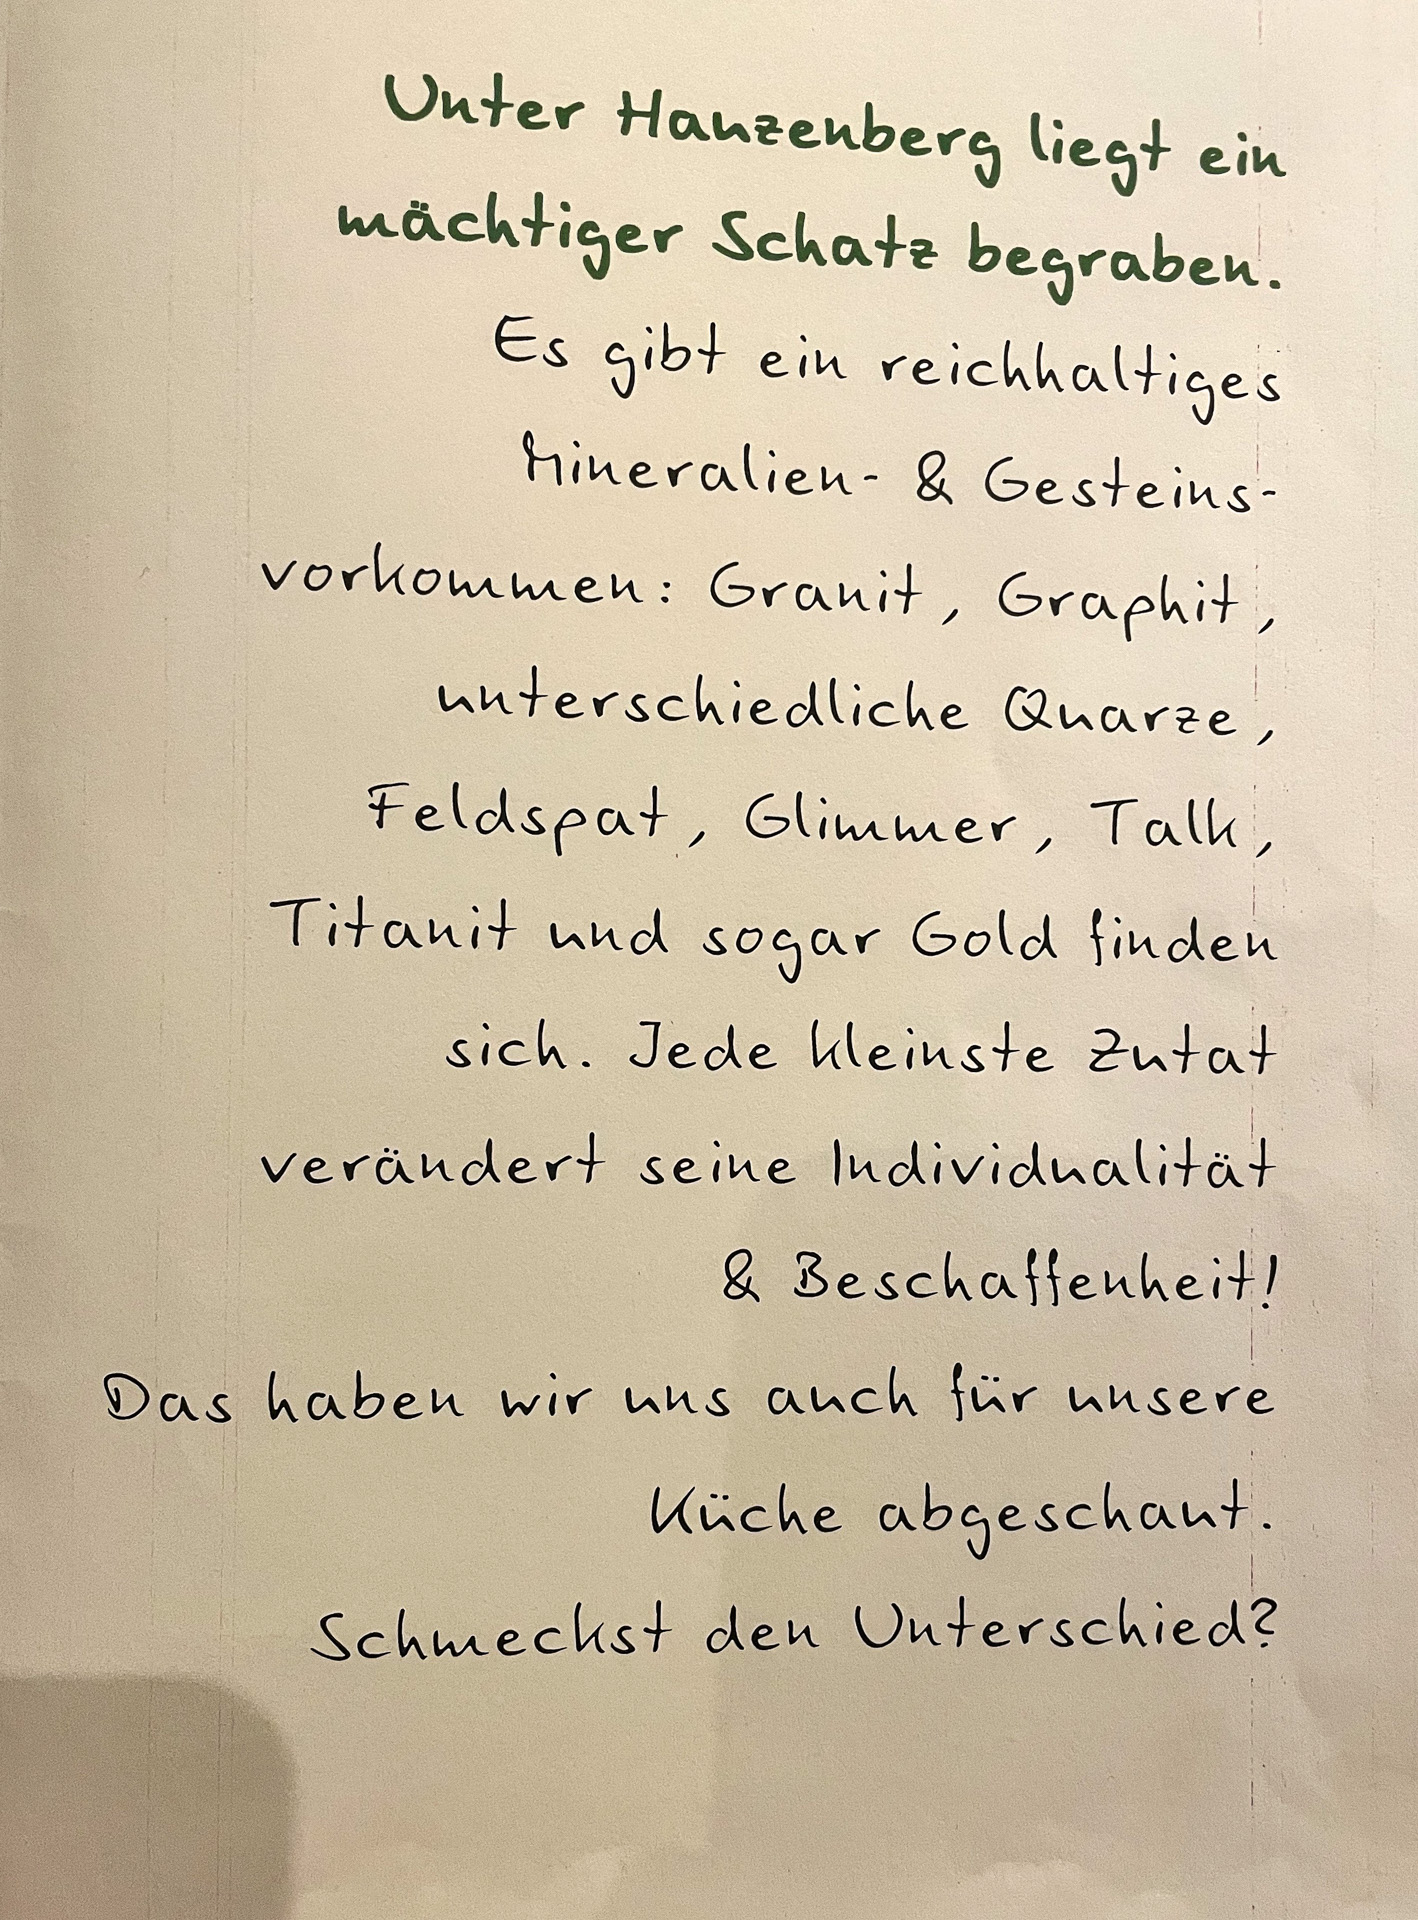 Unter Hauzenberg liegt ein
mächtiger Schatz begraben.
Es gibt ein reichhaltiges
Mineralien- & Gesteins-
vorkommen: Granit, Graphit,
unterschiedliche Quarze,
Feldspat, Glimmer, Talk,
Titanit und sogar Gold finden
sich. Jede kleinste Zutat
verändert seine Individualität
& Beschaffenheit!
Das haben wir uns auch für unsere
Küche abgeschaut.
Schmeckst den Unterschied?